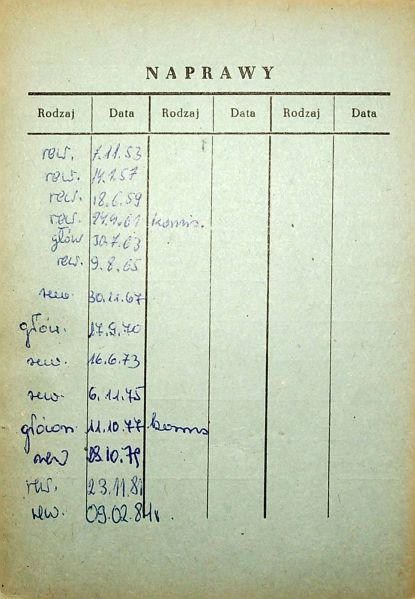 NAPRAWY
Rodzaj Data Rodzaj Data Rodzaj Data
rew. 7.11.53
rew. 14.2.57
rew. 18.6.59
rew. 27.4.61 komis.
głów 30.7.63
rew. 9.8.65
rew. 30.11.67
głów. 17.9.70
rew. 16.6.73
rew. 6.11.75
główn. 11.10.77 komis
rew 23.10.79
rew. 23.11.81
rew. 09.02.84r.